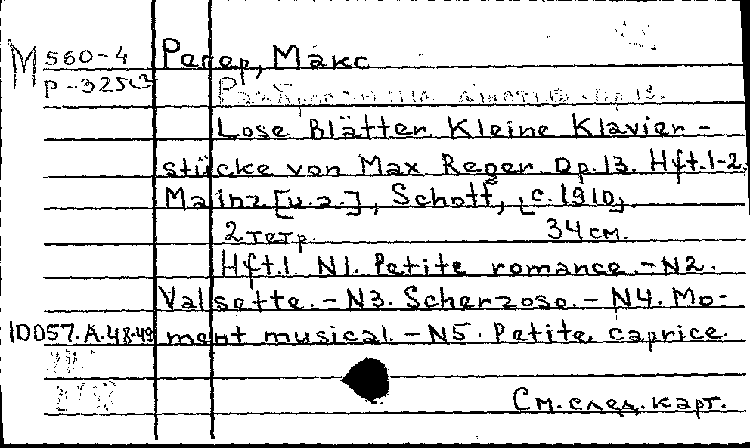 М 560-4 Регер, Макс
Р-325
Lose Blätter Kleine Klavier-
stücke von Max Reger Op.13. Hft.1-2.
Mainz [u.a.], Schott, [c.1910].
2 тетр. 34 см.
Hft.1 N1. Petite romance.-N2.
Valsette.-N3. Scherzoso.-N4. Mo-
10057.А.48-49 ment musical.-N5. Petite caprice.
См. след. карт.